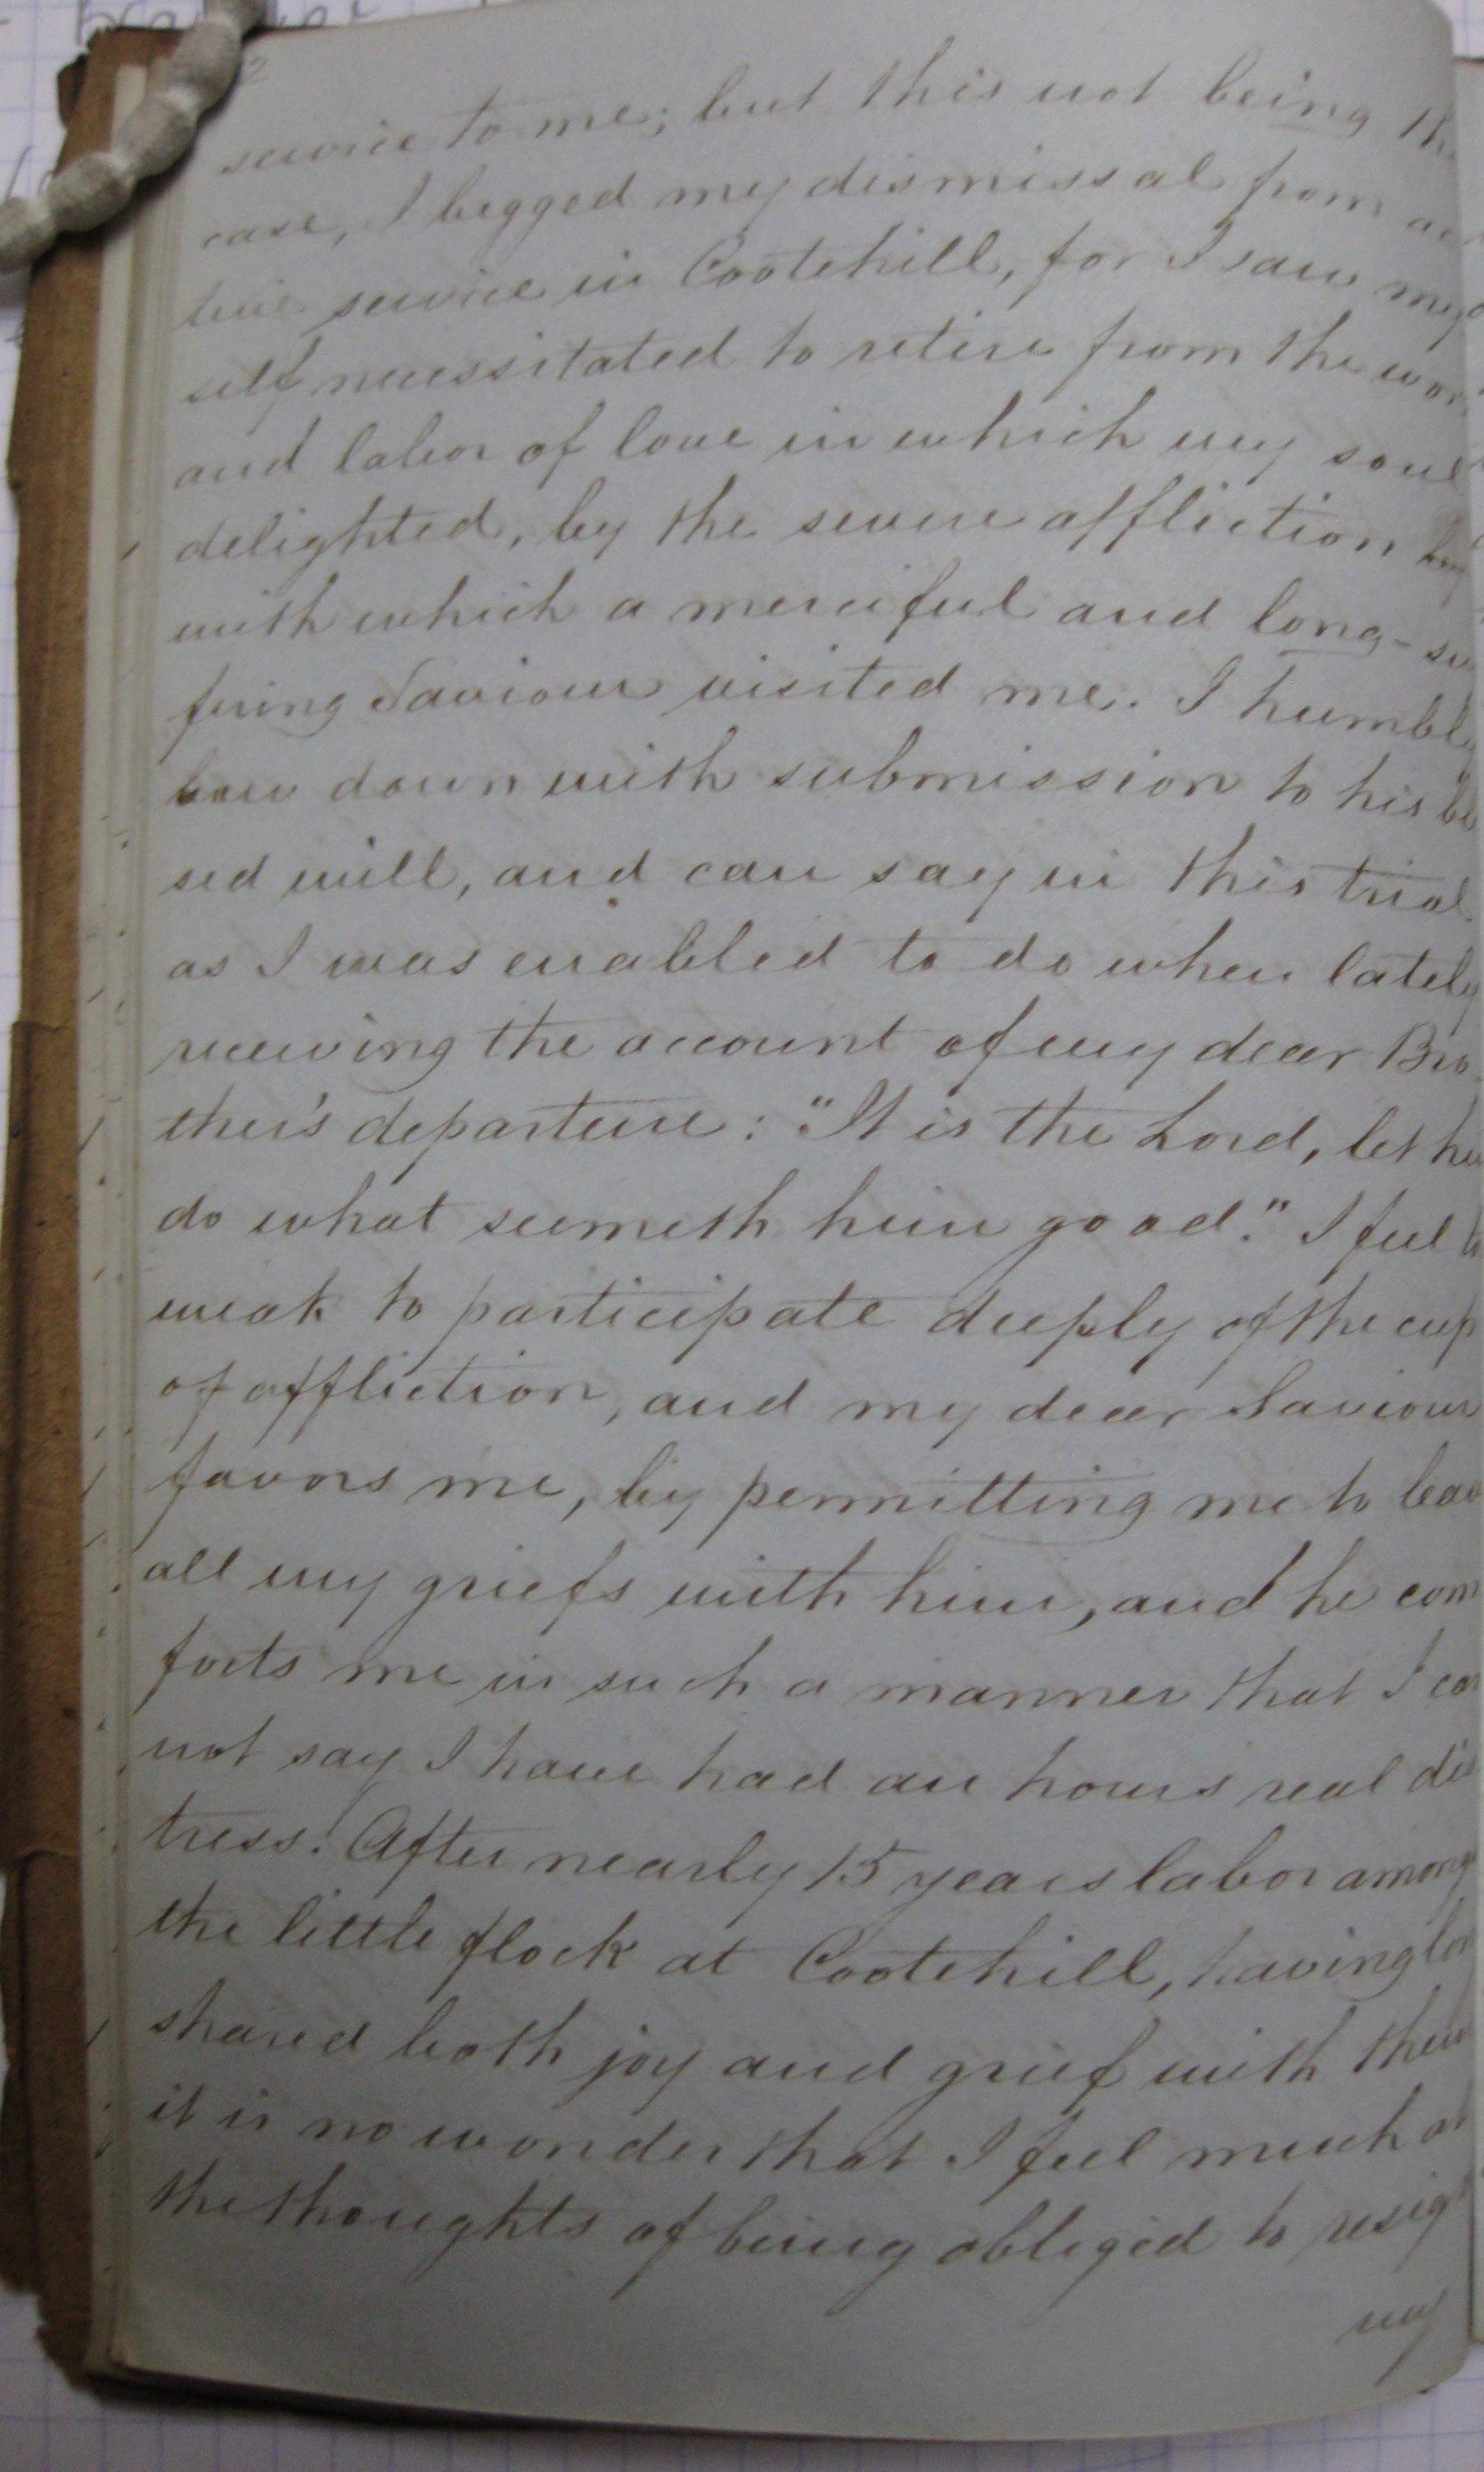 2
service to me; but this not being th
case, I begged my dismissal from ac
tive service in Cootehill, for I saw my
self necessitated to retire from the wor
and labor of love in which my soul
delighted, by the severe affliction
with which a merciful and long-su
fering Saviour visited me. I humbly
bow down with submission to his bl
sed will, and can say in this trial
as I was enabled to do when lately
receiving the account of my dear Bro
ther's departure: "It is the Lord, let hi
do what seemeth him good." I feel
weak to participate deeply of the cup
of affliction, and my dear Saviour
favors me, by permitting me to leav
all my griefs with him, and he com
forts me in such a manner that I can
not say I have had an hours real dis
tress. After nearly 15 years labor among
the little flock at Cootehill, having
shared both joy and grief with them
it is no wonder that I feel much at
the thoughts of being obliged to resig
my